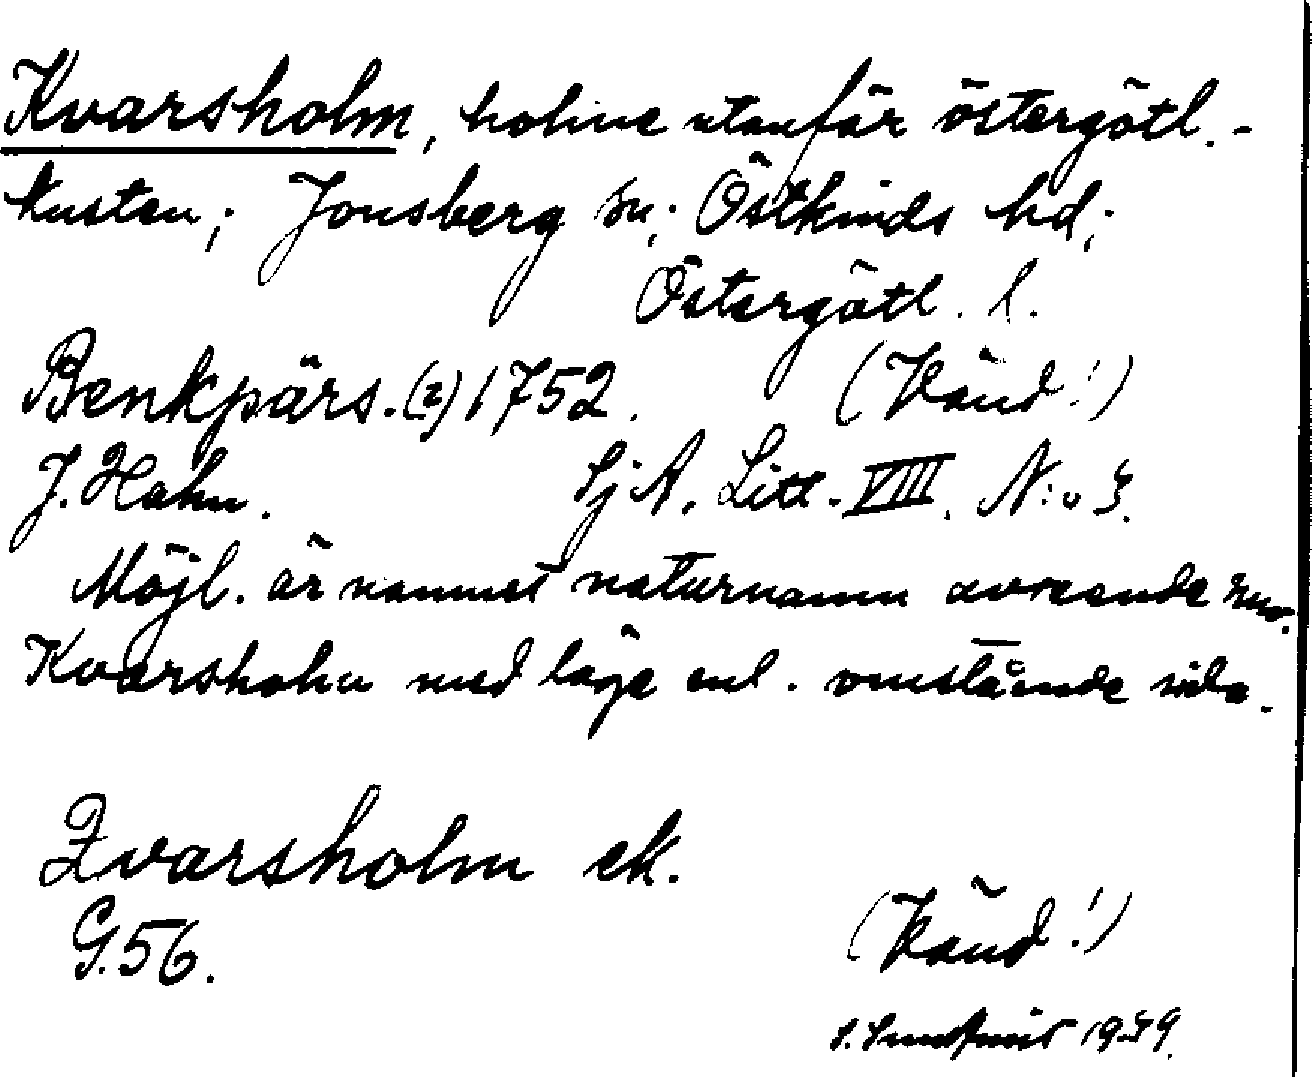 Kvarsholm, holme utanför östergötl.-
kusten; Jonsberg sn; Östkinds hd;
Östergötl. l.
Benkpärs. (?) 1752. (Vänd!)
J. Hahn. SjA, Litt. VIII, N:o 3.
Möjl. är namnet naturnamn avseende nuv.
Kvarsholm med läge enl. omstående sida.
Qvarsholm ek.
G.56. (Vänd!)
S. 1949.